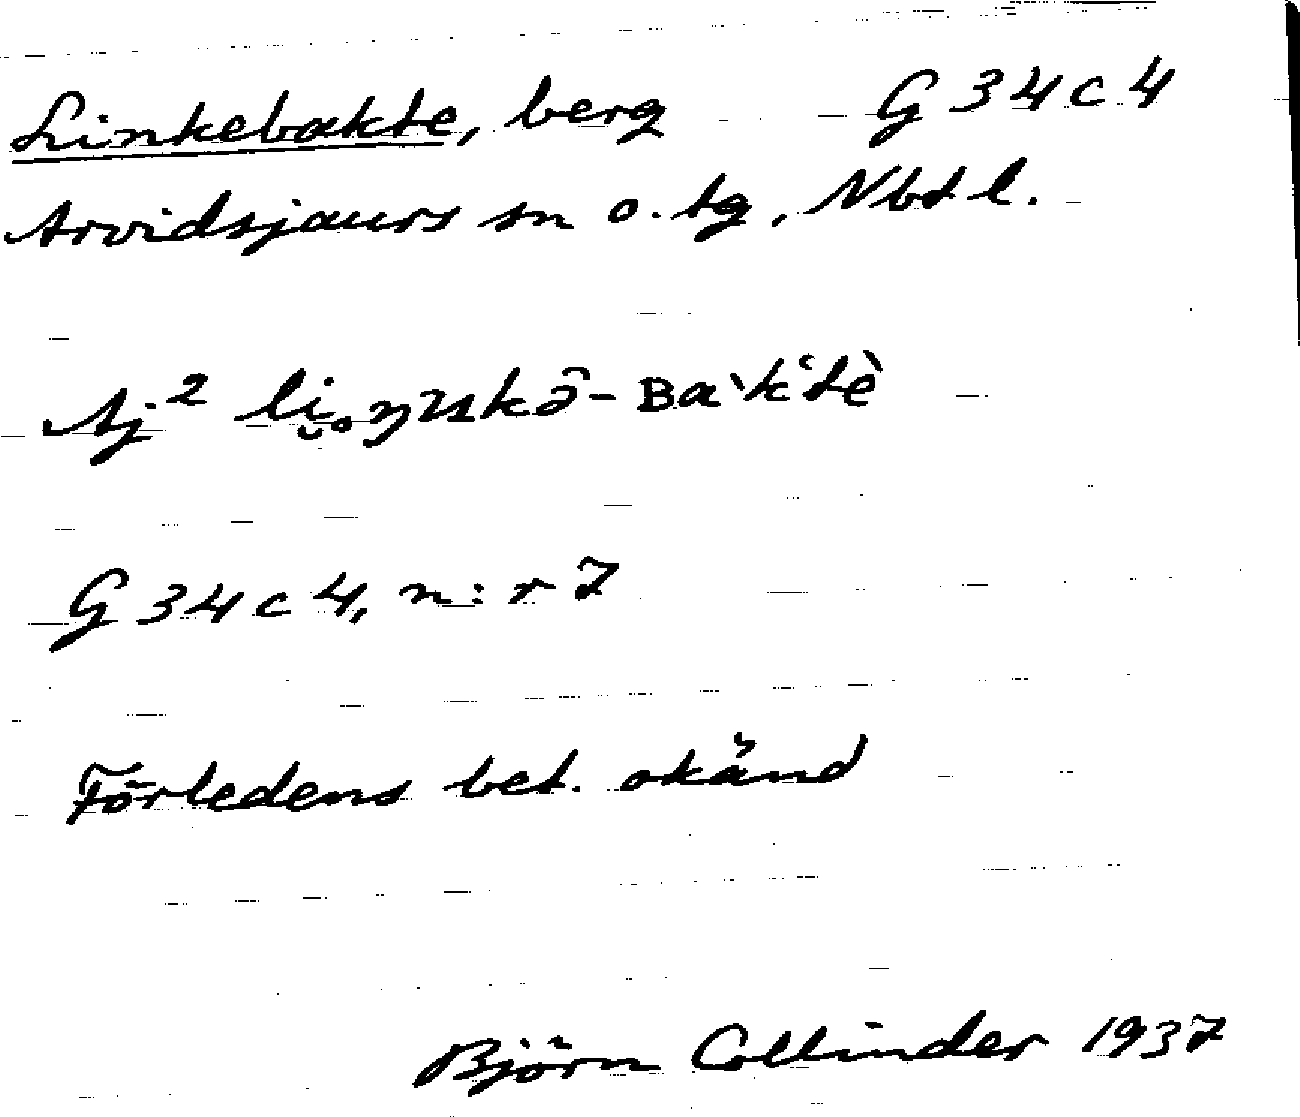 Linkebakte, berg G 34 c 4
Arvidsjaurs sn o. tg, Nbtl.
Aj²
G 34 c 4, n:r 7
Förledens bet. okänd
Björn Collinder 1937